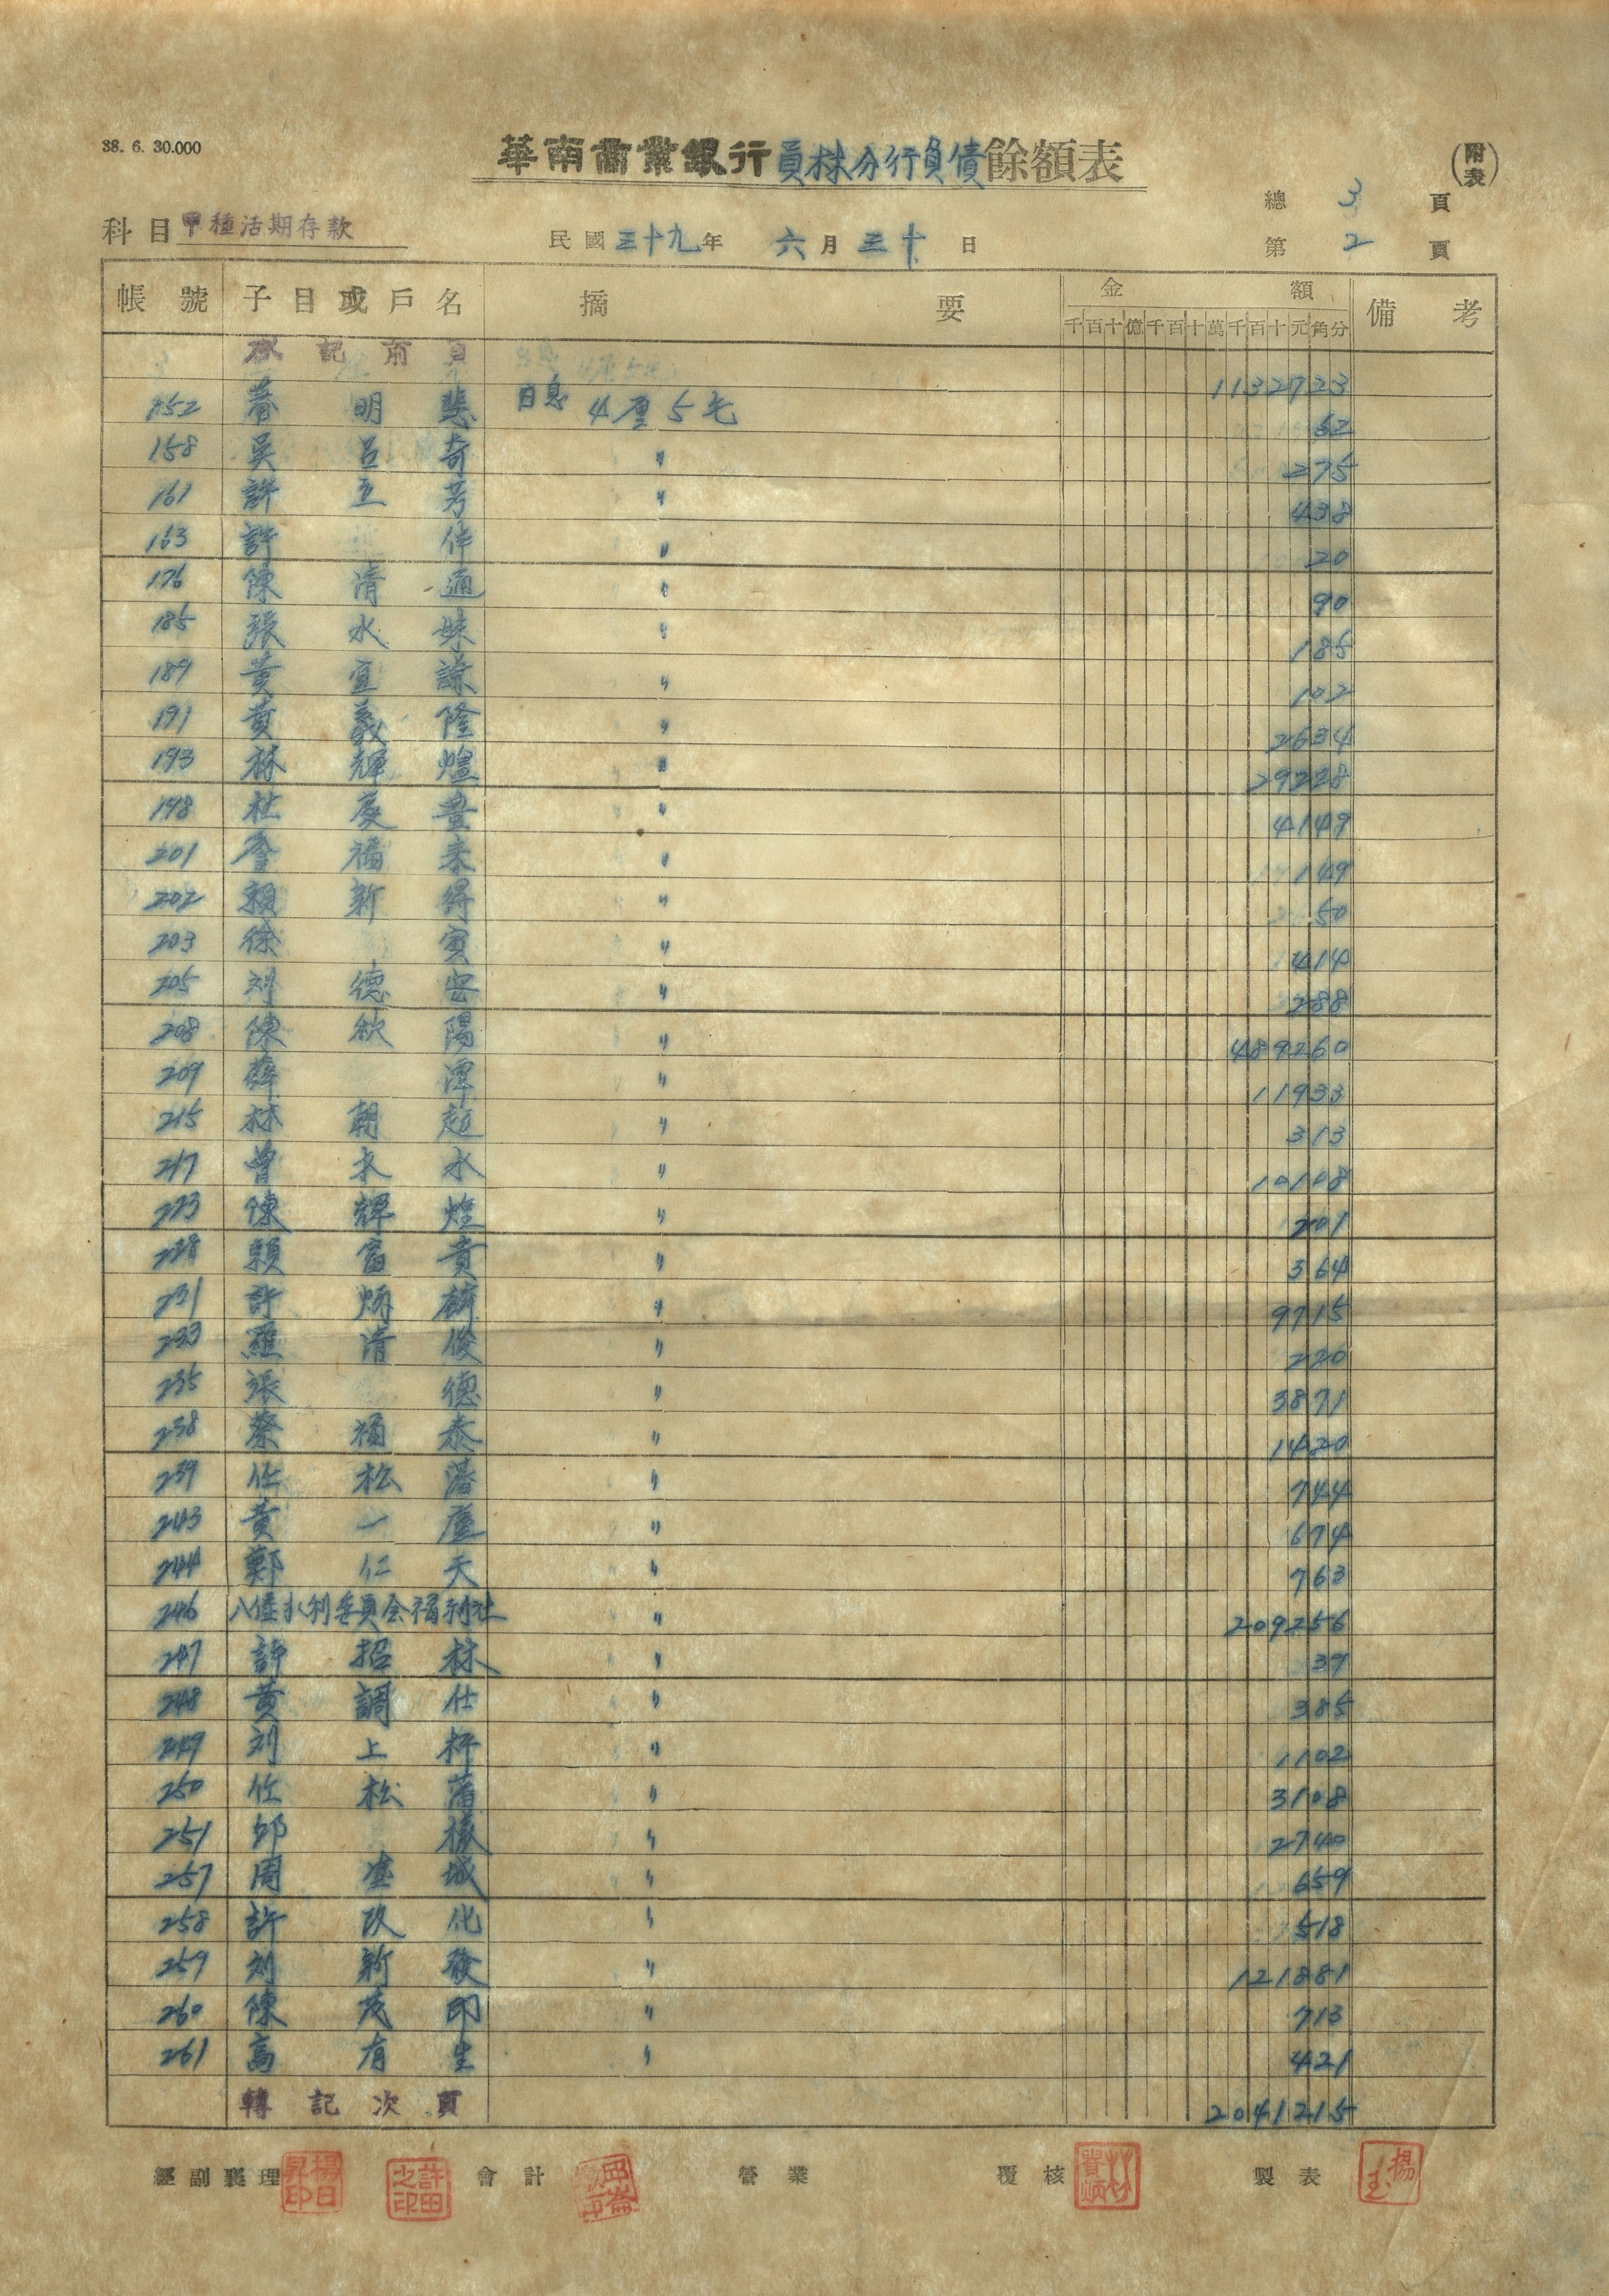 38. 6. 30.000
華南商業銀行員林分行負債餘額表
(附表)
總 3 頁
科目 甲種活期存款
民國三十九年 六月三十日
第 2 頁
帳號 子目或戶名 摘要 金額 備考
千百十億千百十萬千百十元角分
承記前頁 1132723
152 明 日息 4厘5毛 62
158 吳呂奇 〃 275
161 許立芳 〃 438
163 許 〃 20
176 陳清通 〃 90
185 張水妹 〃 185
189 黃宜諒 〃 102
191 黃義隆 〃 2634
193 林輝煌 〃 29228
198 杜慶豊 〃 4149
201 福來 〃 149
202 賴新得 〃 50
203 徐寅 〃 414
205 刘德安 〃 288
208 陳欽陽 〃 489260
209 薛潭 〃 11933
215 林朝起 〃 313
217 曾木水 〃 10108
223 陳輝煌 〃 201
228 賴富貴 〃 364
231 許炳麟 〃 9715
233 羅清俊 〃 220
235 張德 〃 3871
238 蔡福泰 〃 1420
239 竹松藩 〃 744
243 黃一 〃 674
244 鄭仁天 〃 763
246 八堡水利委員会福利社 〃 209256
247 許招林 〃 39
248 黃調仕 〃 385
249 刘上 〃 1102
250 竹松藩 〃 3108
251 邱 〃 2740
257 周城 〃 659
258 許玖化 〃 518
259 刘新發 〃 121881
260 陳茂印 〃 713
261 高有生 〃 421
轉記次頁 2041215
經副襄理 楊日昇印 許田之印 會計 營業 覆核 製表 楊玉